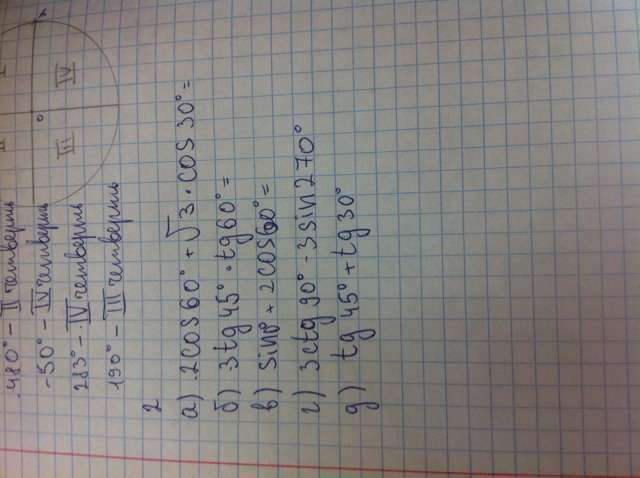 480° - II четверть
-50° - IV четверть
283° - IV четверть
190° - III четверть
II
I
III
IV
0
x
2
а) 2cos60° + √3 · cos30° =
б) 3tg45° · tg60° =
в) sin0° + 2cos60° =
г) 3ctg90° - 3sin270°
д) tg45° + tg30°